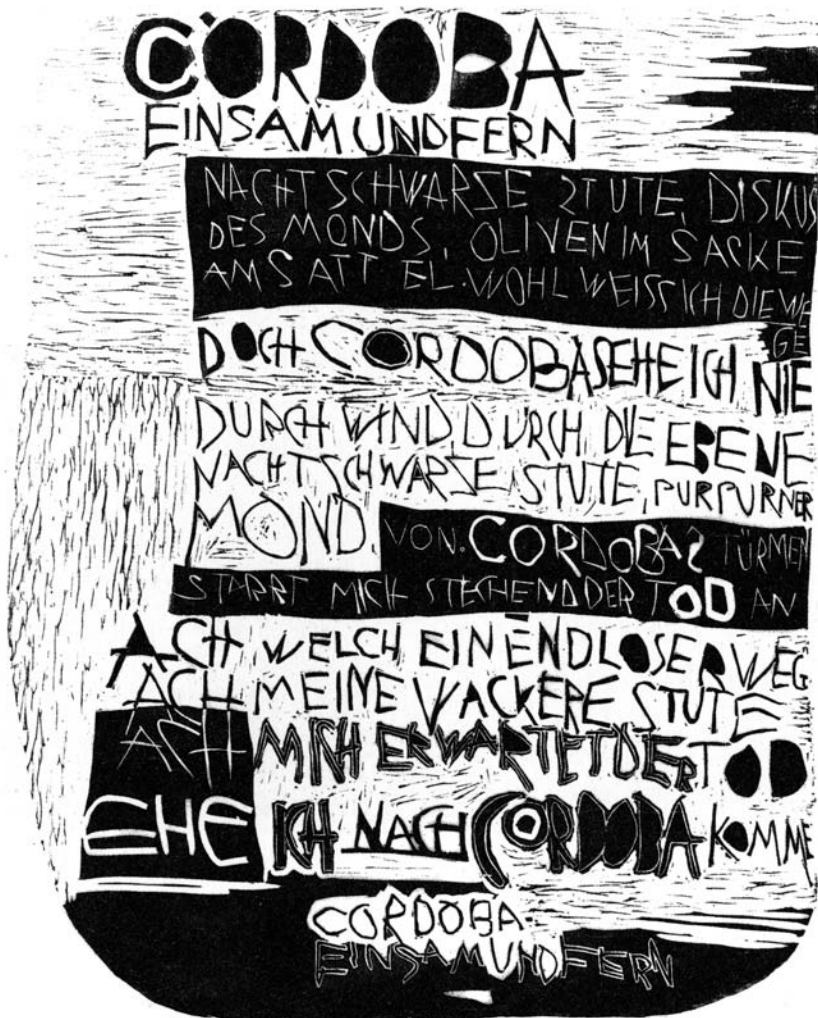 CÓRDOBA
EINSAM UND FERN
NACHTSCHWARZE STUTE, DISKUS
DES MONDS, OLIVEN IM SACKE
AM SATTEL. WOHL WEISS ICH DIE WE
GE
DOCH CORDOBA SEHE ICH NIE
DURCH WIND, DURCH DIE EBENE
NACHTSCHWARZE STUTE, PURPURNER
MOND. VON CORDOBAS TÜRMEN
STARRT MICH STECHEND DER TOD AN
ACH WELCH EIN ENDLOSER WEG
ACH MEINE WACKERE STUTE
ACH MICH ERWARTET DER TOD
EHE ICH NACH CORDOBA KOMME
CORDOBA
EINSAM UND FERN